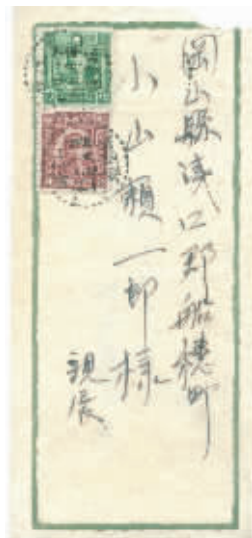 岡山縣浅口郡船穂町
小山頼一郎様
親展